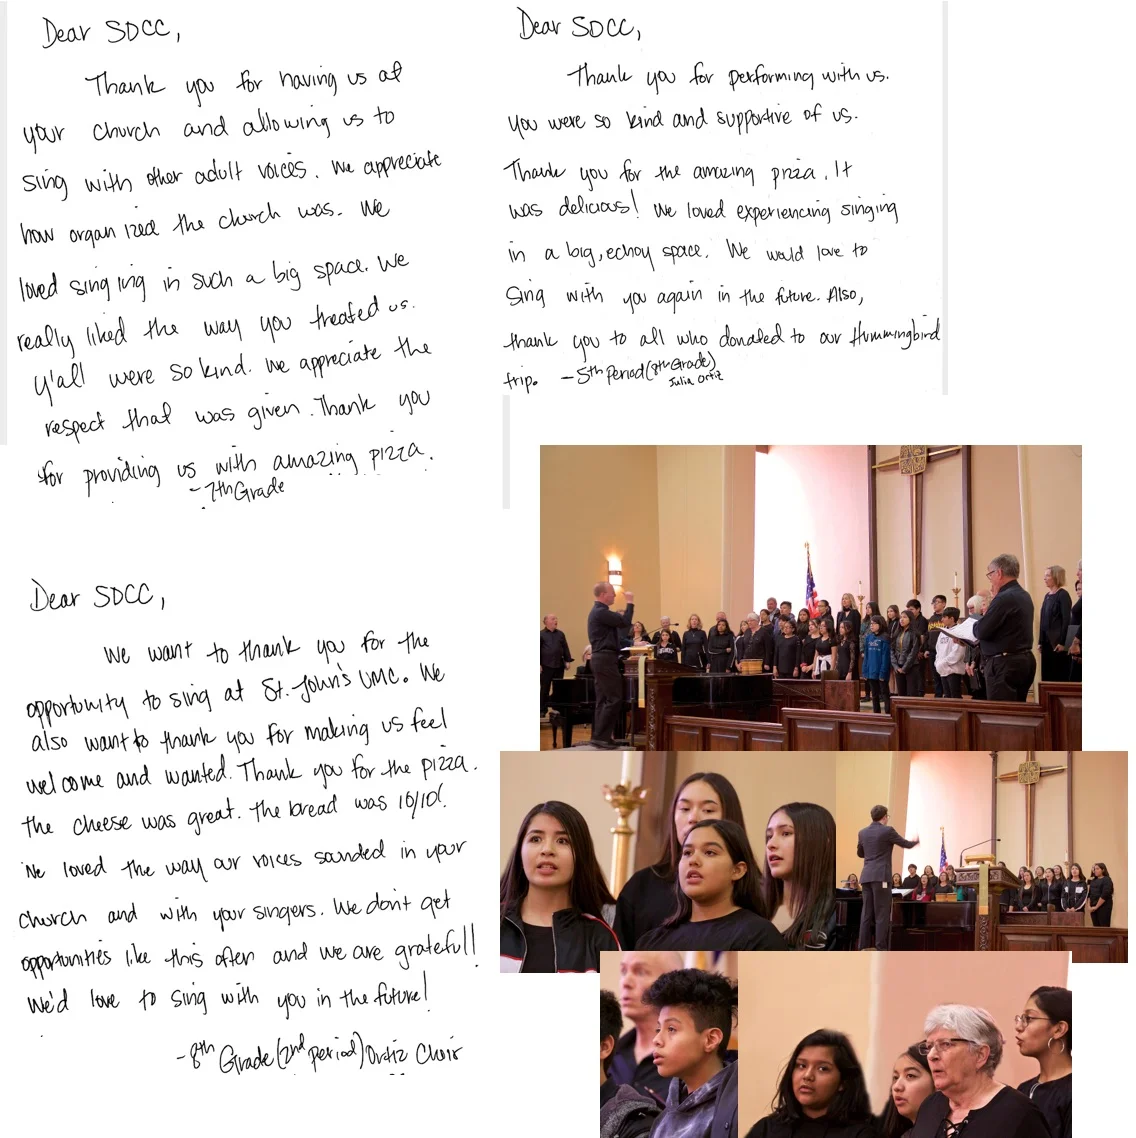 Dear SDCC,
Thank you for having us at
your church and allowing us to
sing with other adult voices. We appreciate
how organized the church was. We
loved singing in such a big space. We
really liked the way you treated us.
Y'all were so kind. We appreciate the
respect that was given. Thank you
for providing us with amazing pizza.
-7th Grade
Dear SDCC,
Thank you for performing with us.
You were so kind and supportive of us.
Thank you for the amazing pizza. It
was delicious! We loved experiencing singing
in a big, echoy space. We would love to
sing with you again in the future. Also,
thank you to all who donated to our Hummingbird
trip. -5th Period (8th Grade)
Julia Ortiz
Dear SDCC,
We want to thank you for the
opportunity to sing at St. John's UMC. We
also want to thank you for making us feel
welcome and wanted. Thank you for the pizza.
The cheese was great. The bread was 10/10!
We loved the way our voices sounded in your
church and with your singers. We don't get
opportunities like this often and we are grateful!
We'd love to sing with you in the future!
-8th Grade (2nd period) Ortiz Choir